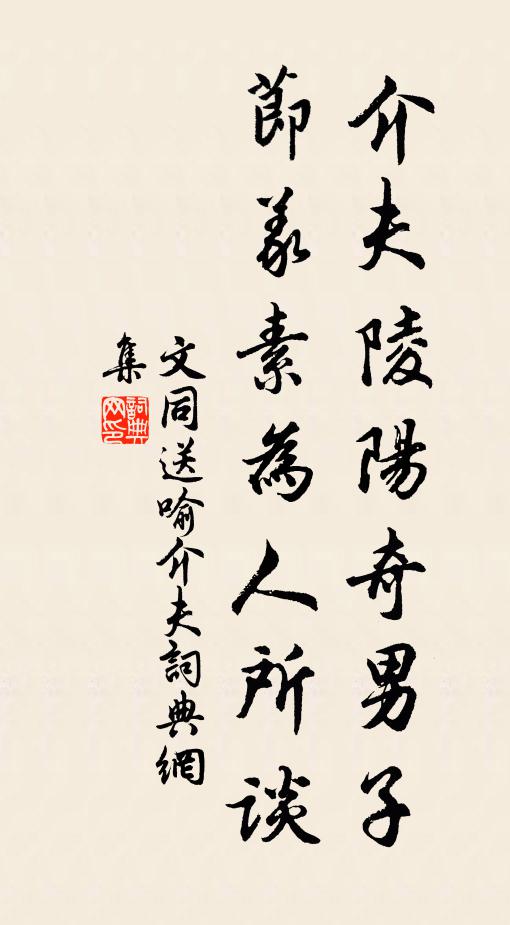 介夫陵陽奇男子
節義素為人所談
文同送喻介夫詞典網
集
詞典網印